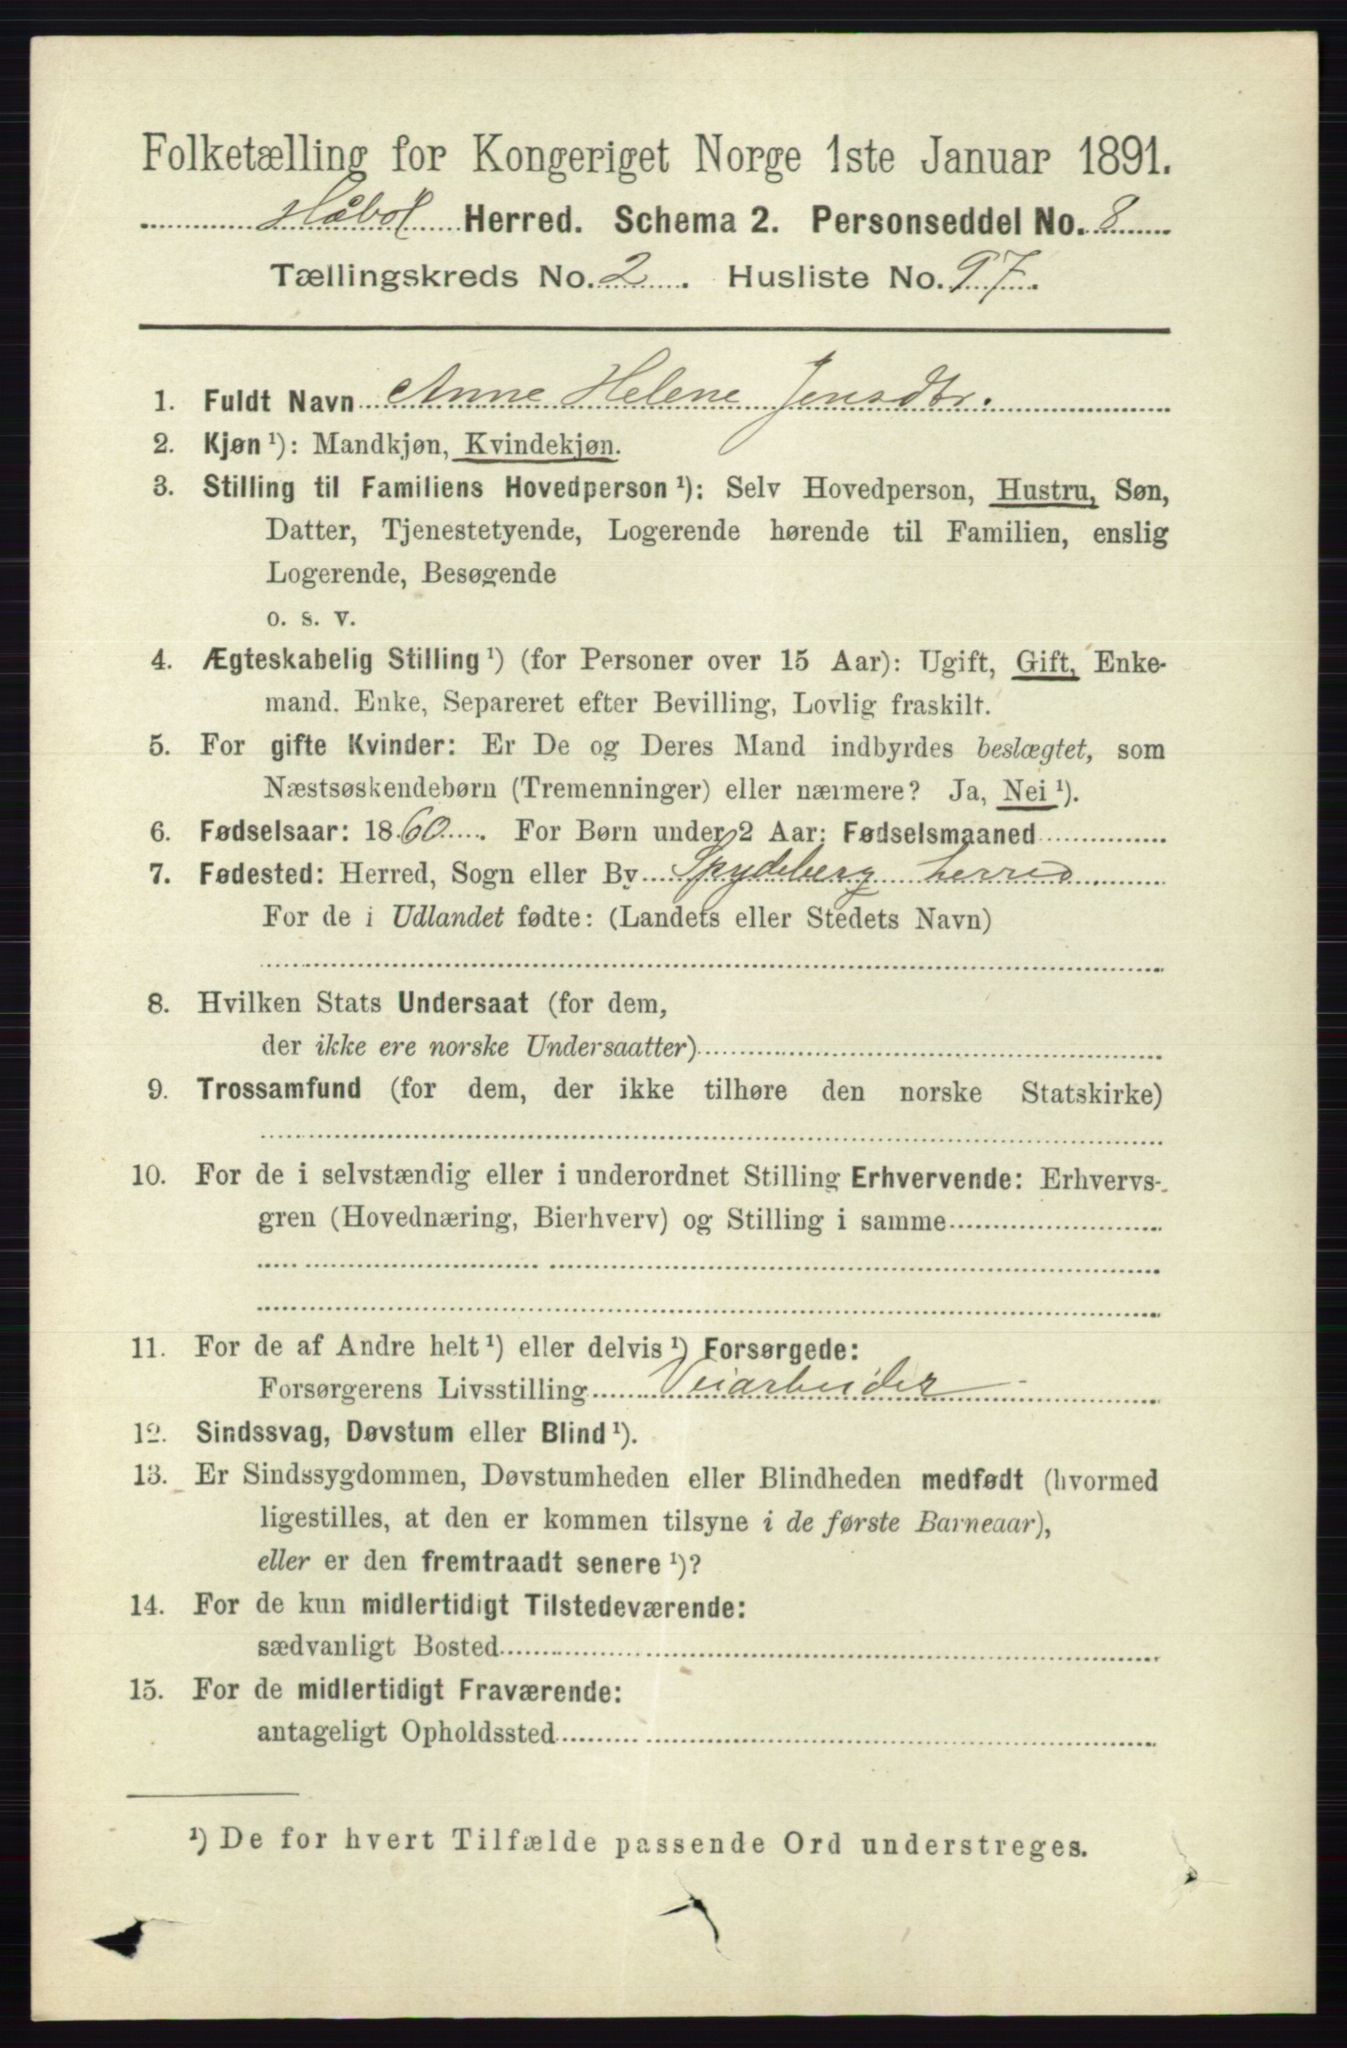 Folketælling for Kongeriget Norge 1ste Januar 1891.
Håbøl Herred. Schema 2. Personseddel No. 8
Tællingskreds No. 2. Husliste No. 97.
1. Fuldt Navn Anne Helene Jensdtr.
2. Kjøn ¹): Mandkjøn, Kvindekjøn.
3. Stilling til Familiens Hovedperson ¹): Selv Hovedperson, Hustru, Søn,
Datter, Tjenestetyende, Logerende hørende til Familien, enslig
Logerende, Besøgende
o. s. v.
4. Ægteskabelig Stilling ¹) (for Personer over 15 Aar): Ugift, Gift, Enke-
mand. Enke, Separeret efter Bevilling, Lovlig fraskilt.
5. For gifte Kvinder: Er De og Deres Mand indbyrdes beslægtet, som
Næstsøskendebørn (Tremenninger) eller nærmere? Ja, Nei ¹).
6. Fødselsaar: 1860. For Børn under 2 Aar: Fødselsmaaned
7. Fødested: Herred, Sogn eller By Spydeberg herred
For de i Udlandet fødte: (Landets eller Stedets Navn)
8. Hvilken Stats Undersaat (for dem,
der ikke ere norske Undersaatter)
9. Trossamfund (for dem, der ikke tilhøre den norske Statskirke)
10. For de i selvstændig eller i underordnet Stilling Erhvervende: Erhvervs-
gren (Hovednæring, Bierhverv) og Stilling i samme
11. For de af Andre helt ¹) eller delvis ¹) Forsørgede:
Forsørgerens Livsstilling Veiarbeider
12. Sindssvag, Døvstum eller Blind ¹).
13. Er Sindssygdommen, Døvstumheden eller Blindheden medfødt (hvormed
ligestilles, at den er kommen tilsyne i de første Barneaar),
eller er den fremtraadt senere ¹)?
14. For de kun midlertidigt Tilstedeværende:
sædvanligt Bosted
15. For de midlertidigt Fraværende:
antageligt Opholdssted
¹) De for hvert Tilfælde passende Ord understreges.